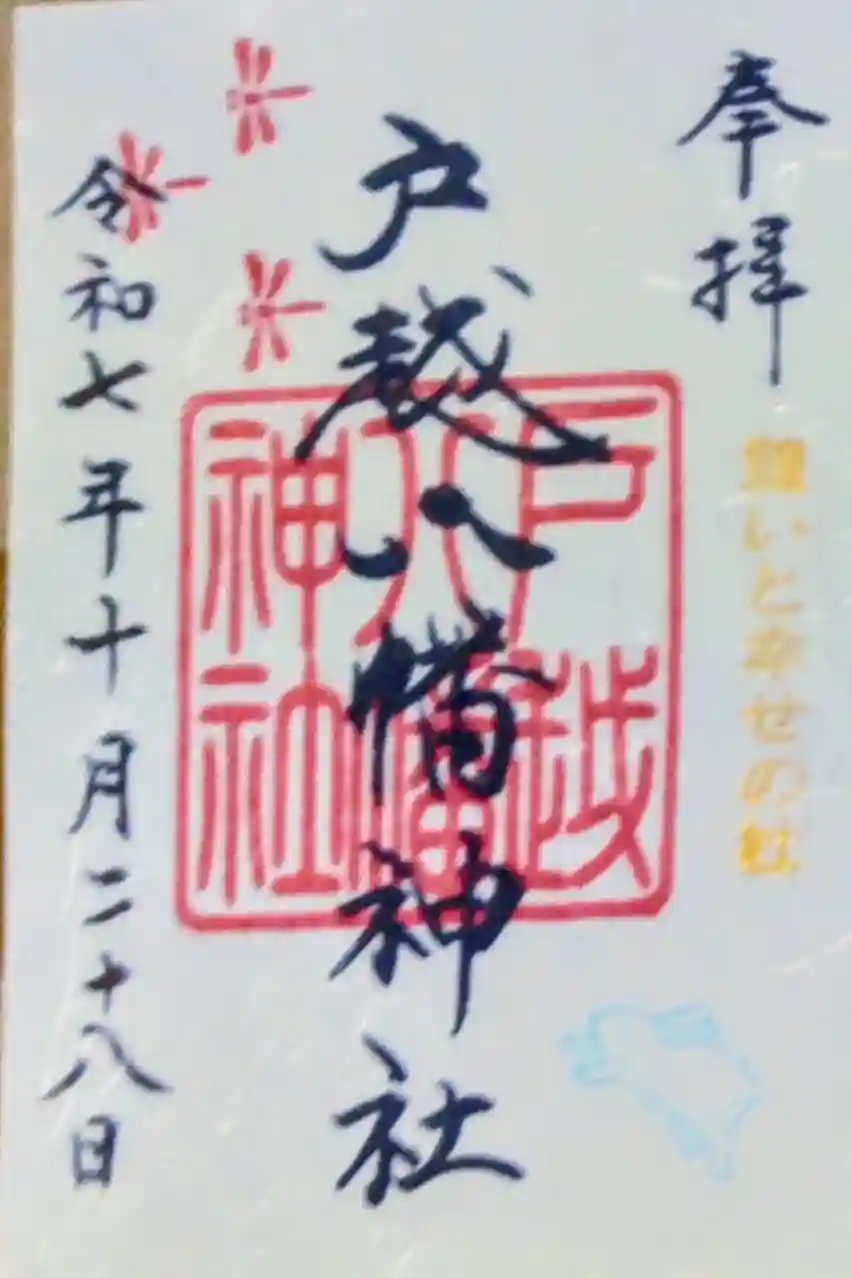 奉拝
願いと幸せの杜
戸越八幡神社
戸越
八幡
神社
令和七年十月二十八日